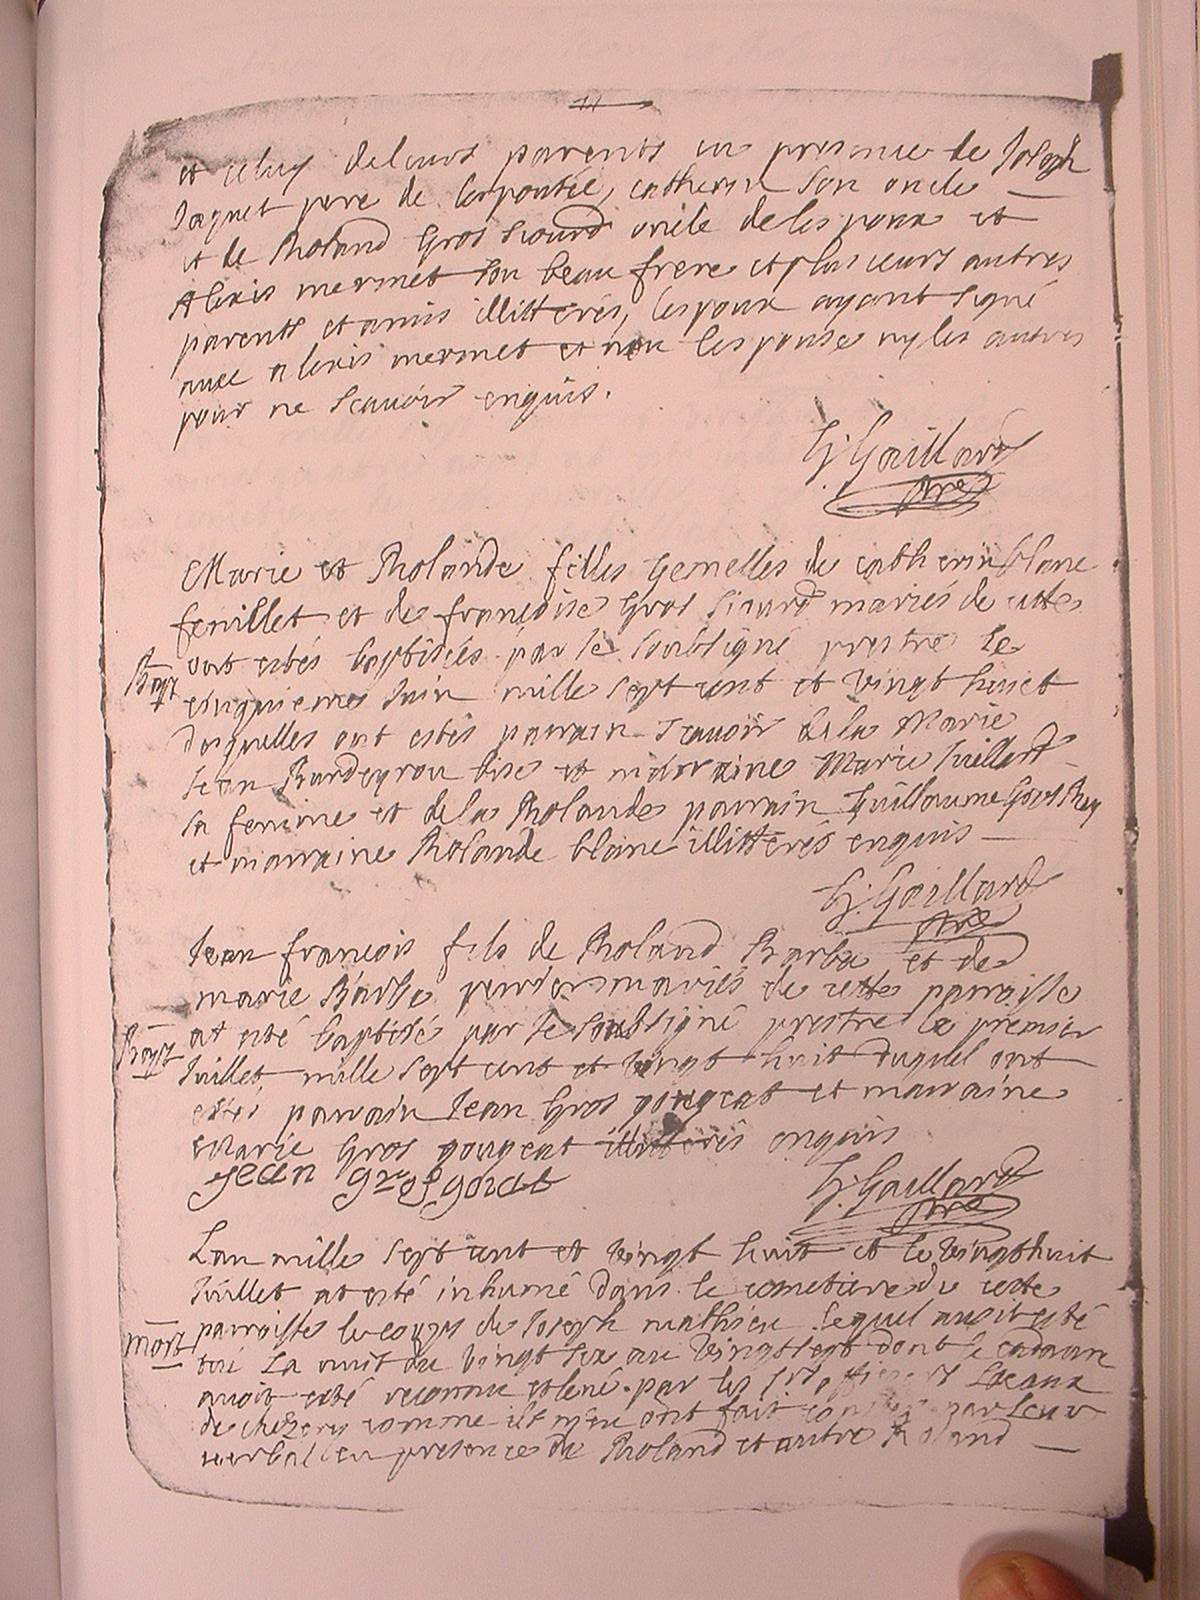 11
et celuy de leurs parents en presence de Joseph
Jaquet pere de lespousée, catherin son oncle
et de Roland Gros Sicurd oncle de lespoux et
Alexis mermet son beau frere et plusieurs autres
parents et amis illitterés, lespoux ayant signé
avec alexis mermet et non lespouse ny les autres
pour ne scavoir enquis.
G. Gaillard
pre
Marie et Rolande filles Gemelles de catherin blanc
feuillet et de françoise Gros Sicurd mariés de cette
Bapt ont estés baptisées par le soubsigné prestre le
cinquieme Juin mille sept cent et vingt huict
desquelles ont estés parrain scavoir de la Marie
Jean Burdeyron bise et marraine Marie Juillard
sa femme et de la Rolande parrain Guillaume Gros Rey
et marraine Rolande blanc illitterés enquis
G. Gaillard
pre
Jean françois fils de Roland Barbe et de
marie Barbe mariés de cette parroisse
Bapt at esté baptisé par le soubsigné prestre le premier
Juillet mille sept cent et vingt huit duquel ont
estés parrain Jean Gros gougeat et marraine
Marie Gros gougeat illitterés enquis
Jean gros goiat
G. Gaillard
pre
Lan mille sept cent et vingt huit et le vingthuit
Juillet at esté inhumé dans le cemetiere de cette
Mort parroisse le corps de Joseph mathieu lequel avoit esté
tué La nuit du vingt six au vingtsept dont le cadavre
avoit esté reconnu et levé par les srs officiers Locaux
de chezery comme ils m'en ont fait par Leur
verbal en presence de Roland et autre Roland